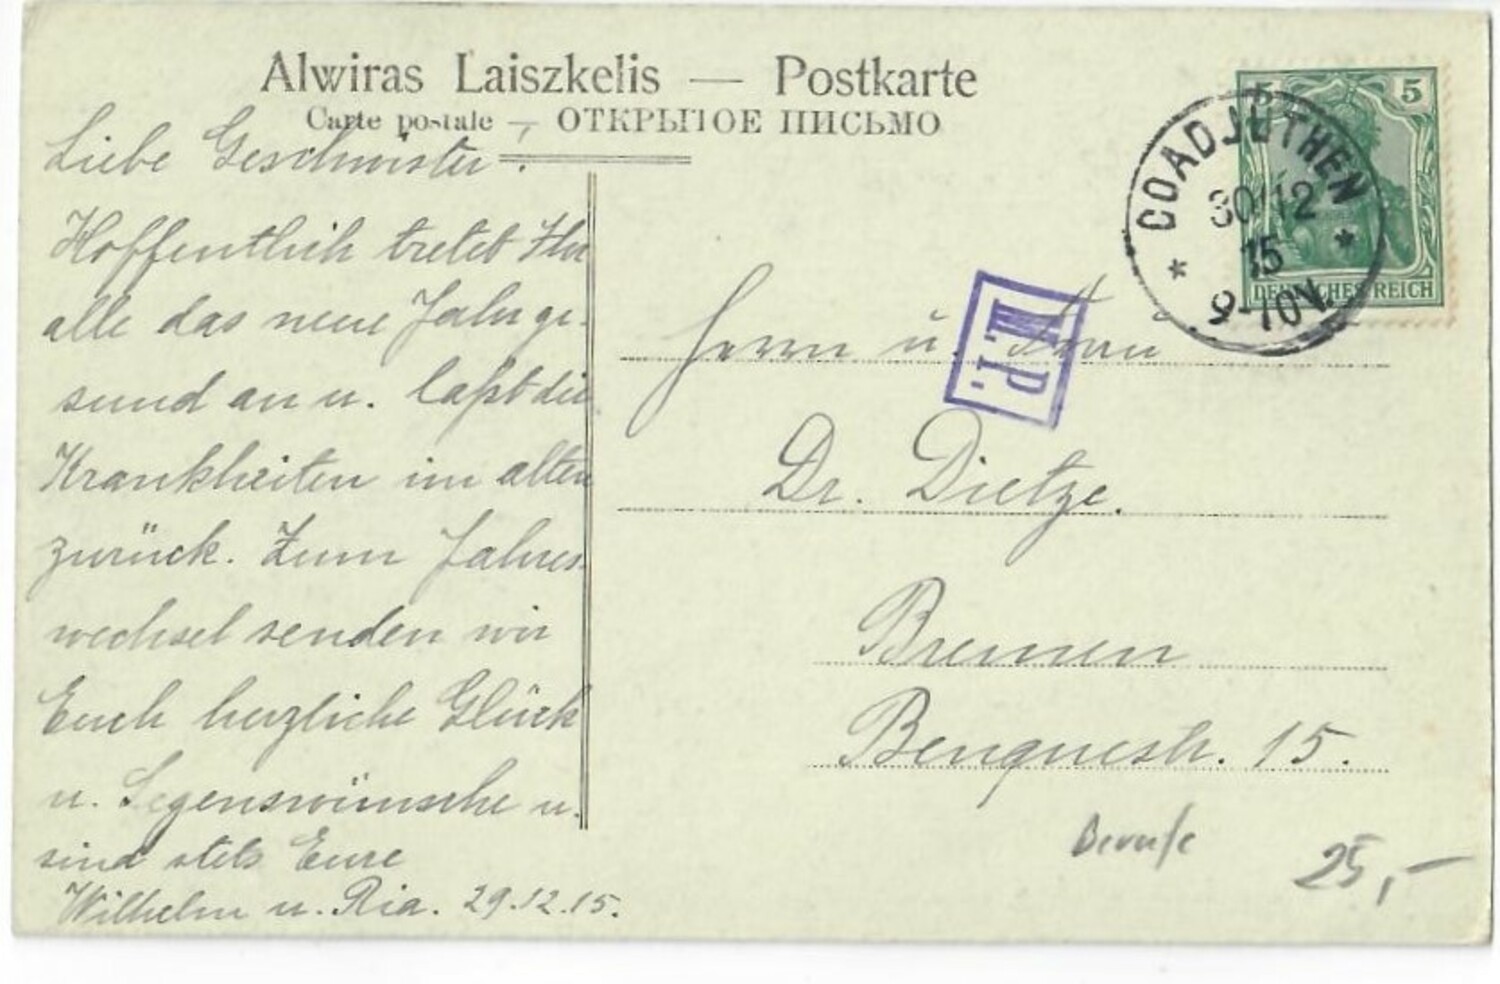 Alwiras Laiszkelis — Postkarte
Carte postale — ОТКРЫТОЕ ПИСЬМО
Liebe Geschwister.
Hoffentlich tretet Ihr
alle das neue Jahr ge-
sund an u. laßt die
Krankheiten im alten
zurück. Zum Jahres-
wechsel senden wir
Euch herzliche Glück
u. Segenswünsche u.
sind stets Eure
Wilhelm u. Ria. 29.12.15.
5 5
DEUTSCHES REICH
COADJUTHEN
30/12
15
9-10V.
* *
M.P.
Herrn u. Frau
Dr. Dietze.
Bremen
Benquestr. 15.
25,-